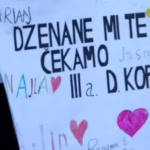 RIAN
DŽENANE MI TE
ČEKAMO
NAJLA III a. D. KOP